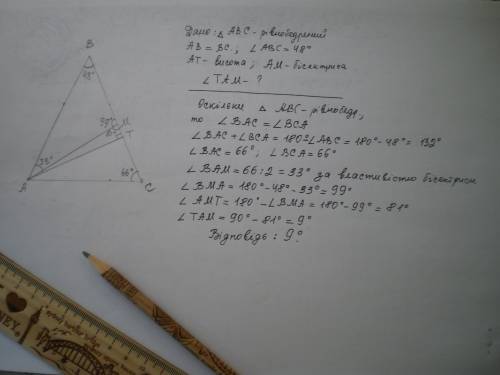 Дано: △ ABC - рівнобедрений
AB = BC; ∠ABC = 48°
AT - висота; AM - бісектриса
∠TAM - ?
Оскільки △ ABC - рівнобедр,
то ∠BAC = ∠BCA
∠BAC + ∠BCA = 180° - ∠ABC = 180° - 48° = 132°
∠BAC = 66°; ∠BCA = 66°
∠BAM = 66 : 2 = 33° за властивістю бісектриси
∠BMA = 180° - 48° - 33° = 99°
∠AMT = 180° - ∠BMA = 180° - 99° = 81°
∠TAM = 90° - 81° = 9°
Відповідь: 9°
B
48°
M
T
33°
66°
A
C